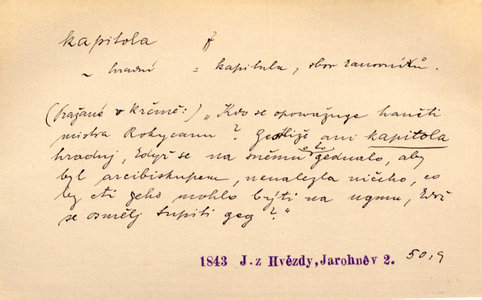 kapitola f
~ hradní = kapitula, sbor kanovníků.
(Pražané v krčmě:) „Kdo se opowažuge haněti
mistra Rokycanu? Gestliže ani kapitola
hradnj, když se na sněmu o to gednalo, aby
byl arcibiskupem, nenalezla ničeho, co
by cti geho mohlo býti na ugmu, kdož
se osmělj tupiti geg?"
1843 J. z Hvězdy, Jarohněv 2. 50,9